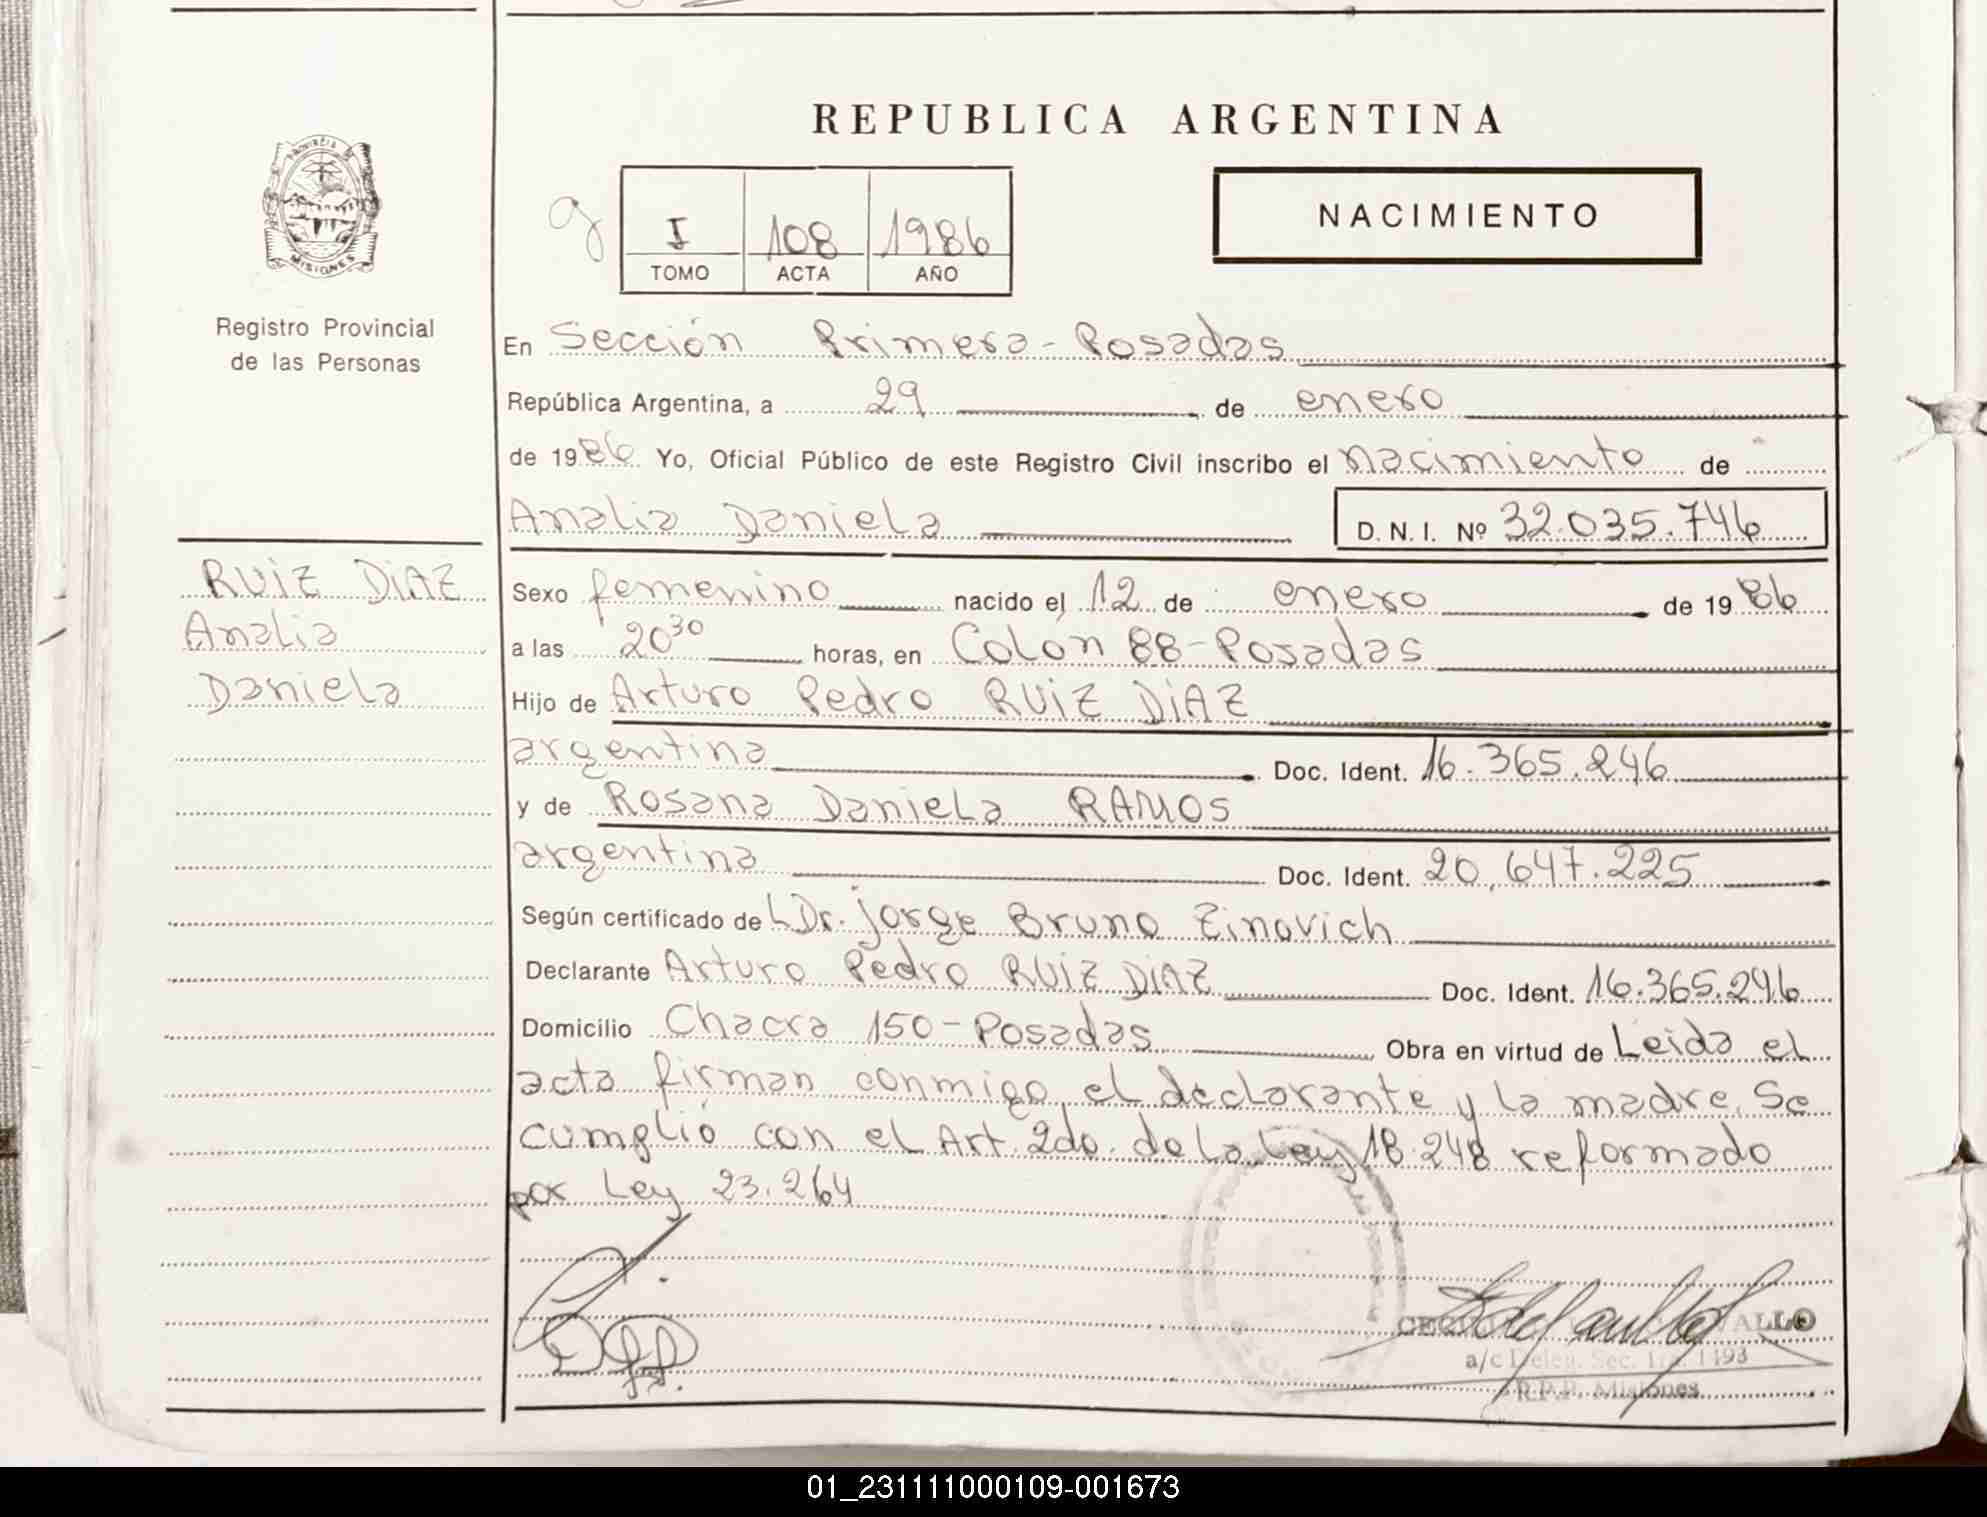 REPUBLICA ARGENTINA
PROVINCIA DE
MISIONES
Registro Provincial
de las Personas
g
I 108 1986
TOMO ACTA AÑO
NACIMIENTO
En Sección Primera - Posadas
República Argentina, a 29 de enero
de 1986 Yo, Oficial Público de este Registro Civil inscribo el nacimiento de
Analia Daniela D. N. I. Nº 32.035.746
RUIZ DIAZ
Analia
Daniela
Sexo femenino nacido el 12 de enero de 1986
a las 20 30 horas, en Colón 88 - Posadas
Hijo de Arturo Pedro RUIZ DIAZ
argentina Doc. Ident. 16.365.246
y de Rosana Daniela RAMOS
argentina Doc. Ident. 20.647.225
Según certificado de L Dr. Jorge Bruno Zinovich
Declarante Arturo Pedro RUIZ DIAZ Doc. Ident. 16.365.246
Domicilio Chacra 150 - Posadas Obra en virtud de Leida el
acta firman conmigo el declarante y la madre. Se
cumplió con el Art. 2do. de la Ley 18.248 reformado
por Ley 23.264
a/c Deleg. Sec. 1ra. 1493
R.P.P. Misiones
01_231111000109-001673